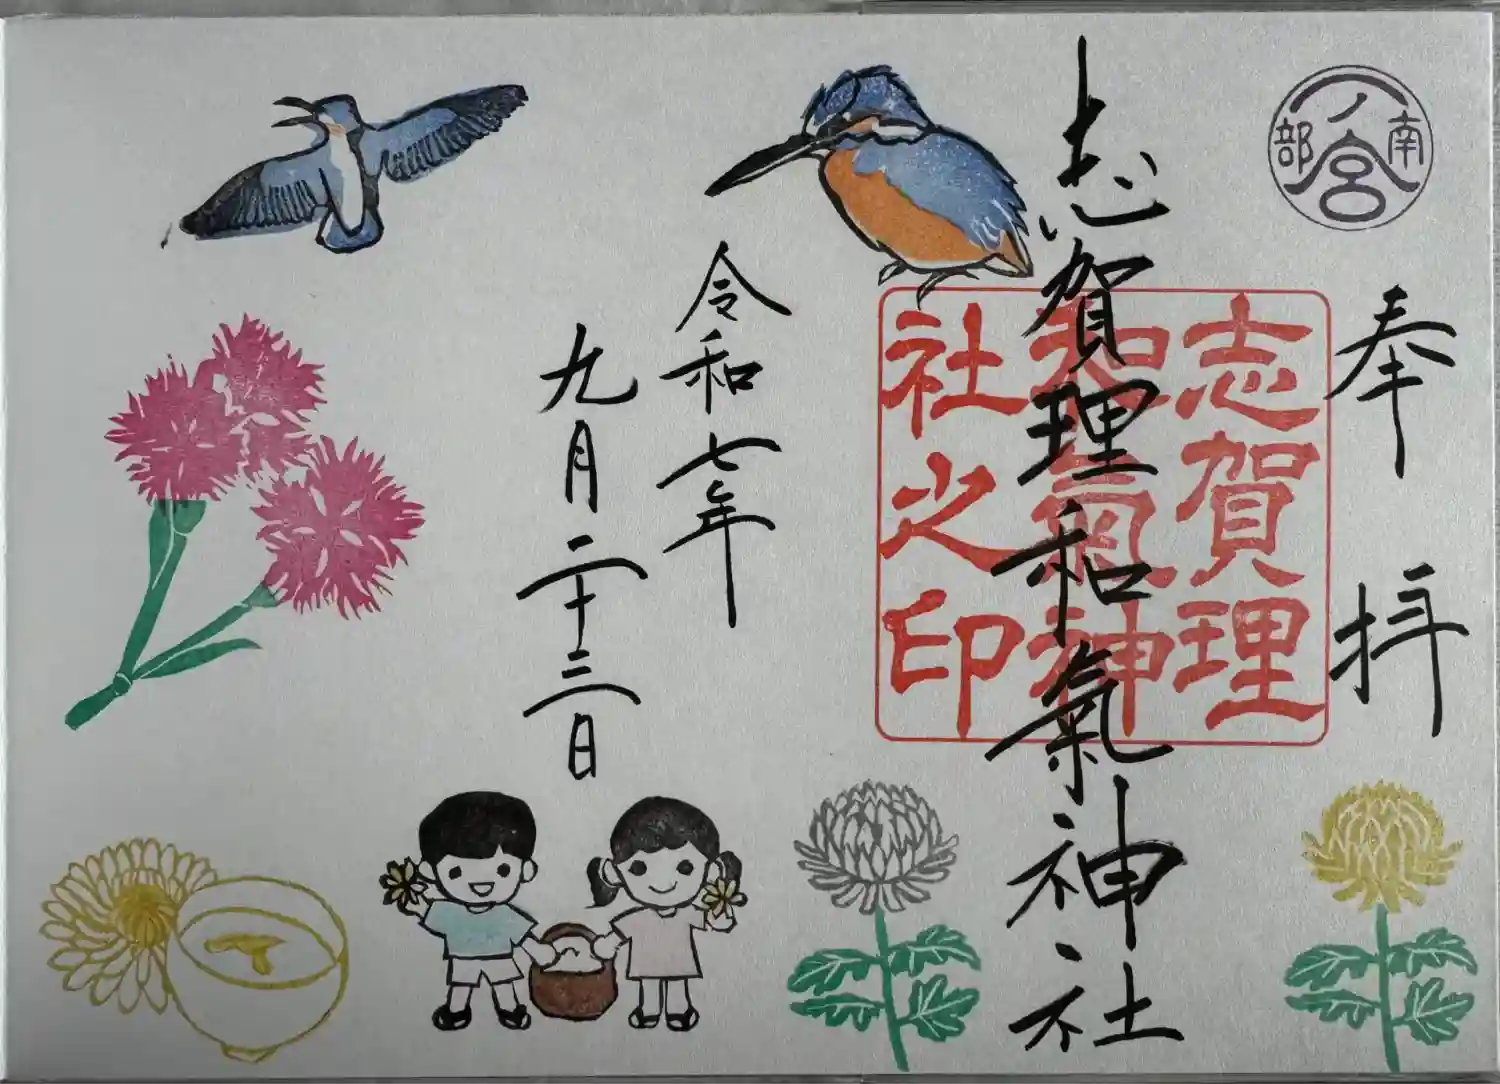 南部
一ノ宮
奉拝
志賀理和氣神社
志賀理
和氣神
社之印
令和七年
九月二十三日